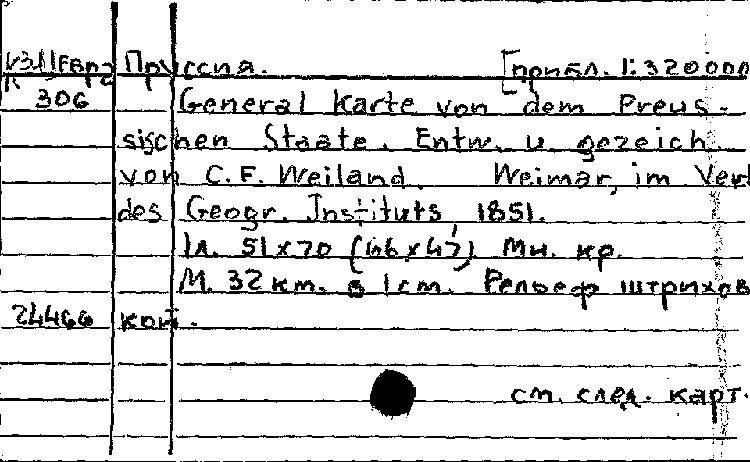 Пруссия. [прибл. 1:320000
306 General Karte von dem Preus-
sischen Staate. Entw. u gezeich
von C. F. Weiland. Weimar, im Verl
des Geogr. Instituts, 1851.
1л. 51x70 (46x47) Мн. кр.
М. 32 км. в 1 см. Рельеф штрихов
24466 кой.
см. след. карт.